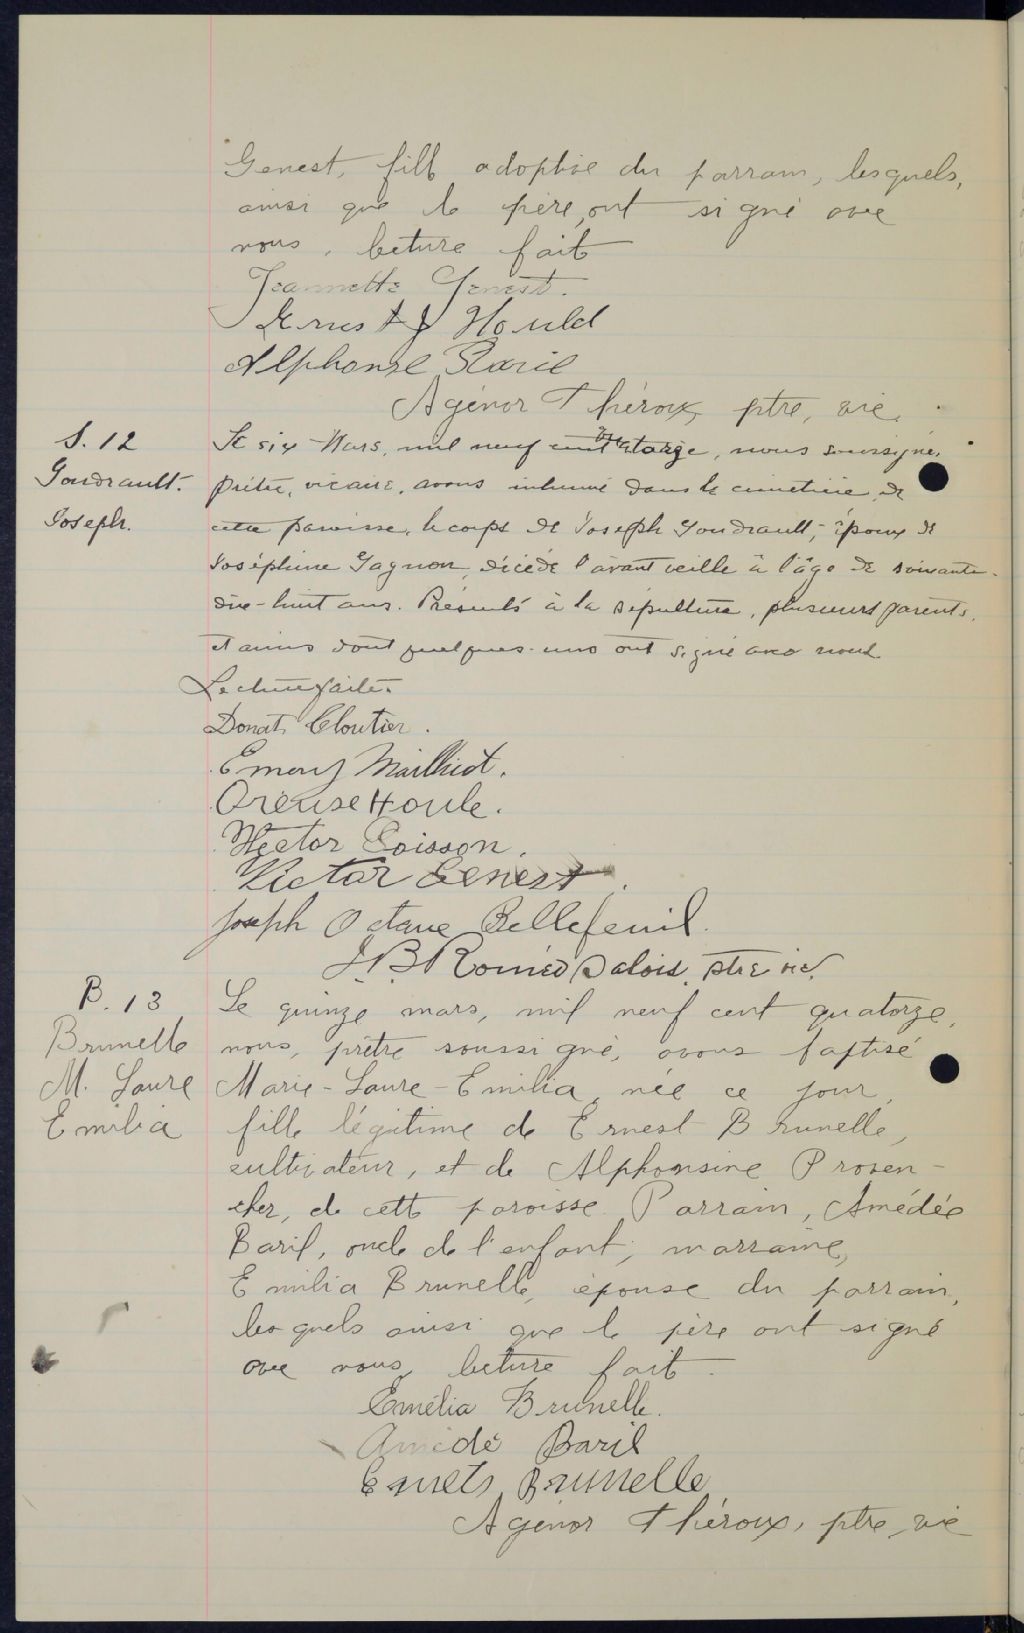 Genest, fille adoptive du parrain, lesquels,
ainsi que le père, ont signé avec
nous. lecture faite
Jeannette Genest.
Ernest J Hould
Alphonse Baril
Agénor Théroux, ptre, vic.
S. 12
Goudrault.
Joseph.
Le six Mars, mil neuf cent quatorze, nous soussigné,
prêtre, vicaire, avons inhumé dans le cimetière de
cette paroisse, le corps de Joseph Goudrault, époux de
Joséphine Gagnon, décédé l'avant veille à l'âge de soixante-
dix-huit ans. Présents à la sépulture, plusieurs parents,
et amis dont quelques-uns ont signé avec nous
Lecture faite.
Donat Cloutier.
Emery Mailhiot.
Oréuse Houle.
Hector Poisson.
Victor Genest.
Joseph Octave Bellefeuil.
J. B. Roméo Salois, ptre vic.
B. 13
Brunelle
M. Laure
Emilia
Le quinze mars, mil neuf cent quatorze,
nous, prêtre soussigné, avons baptisé
Marie-Laure-Emilia, née ce jour,
fille légitime de Ernest Brunelle,
cultivateur, et de Alphonsine Proven-
cher, de cette paroisse. Parrain, Amédée
Baril, oncle de l'enfant; marraine,
Emilia Brunelle, épouse du parrain,
lesquels ainsi que le père ont signé
avec nous, lecture faite.
Emélia Brunelle.
Amédé Baril
Ernets Brunelle
Agénor Théroux, ptre, vic